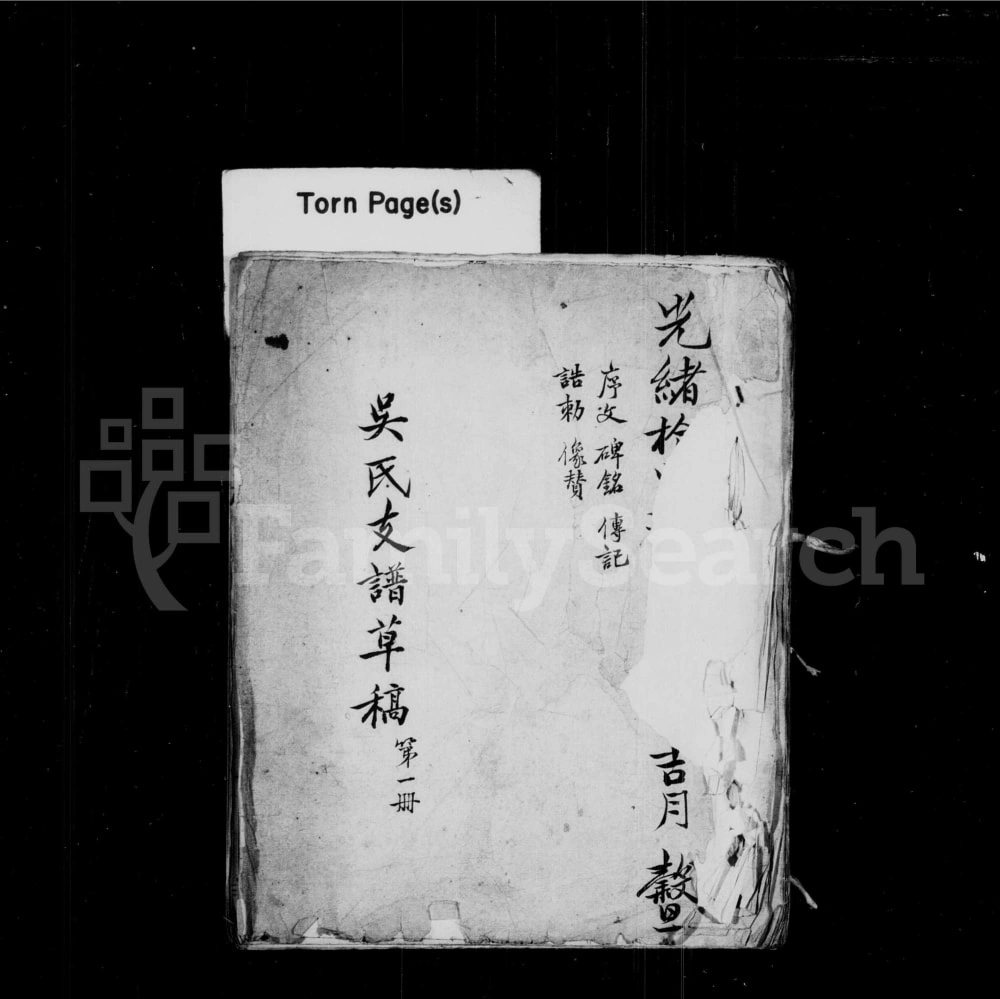 Torn Page(s)
光緒拾
吉月
序文 碑銘 傳記
誥勅 像贊
吳氏支譜草稿
第一冊
FamilySearch